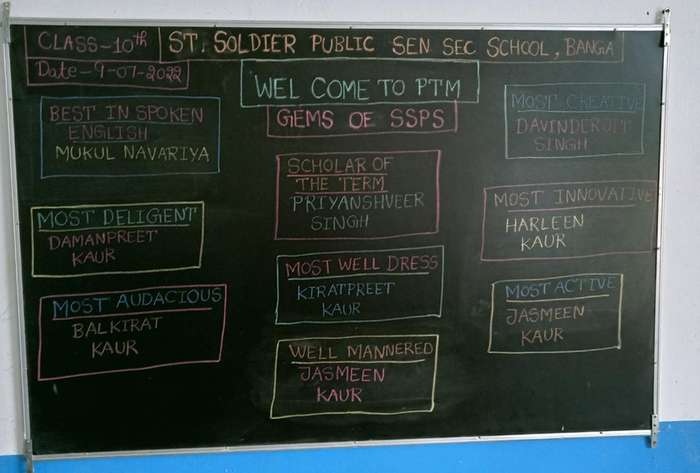 CLASS-10th
ST. SOLDIER PUBLIC SEN SEC SCHOOL, BANGA
Date-9-07-2022
WEL COME TO PTM
GEMS OF SSPS
BEST IN SPOKEN
ENGLISH
MUKUL NAVARIYA
MOST DELIGENT
DAMANPREET
KAUR
MOST AUDACIOUS
BALKIRAT
KAUR
SCHOLAR OF
THE TERM
PRIYANSHVEER
SINGH
MOST WELL DRESS
KIRATPREET
KAUR
WELL MANNERED
JASMEEN
KAUR
MOST CREATIVE
DAVINDERJIT
SINGH
MOST INNOVATIVE
HARLEEN
KAUR
MOST ACTIVE
JASMEEN
KAUR